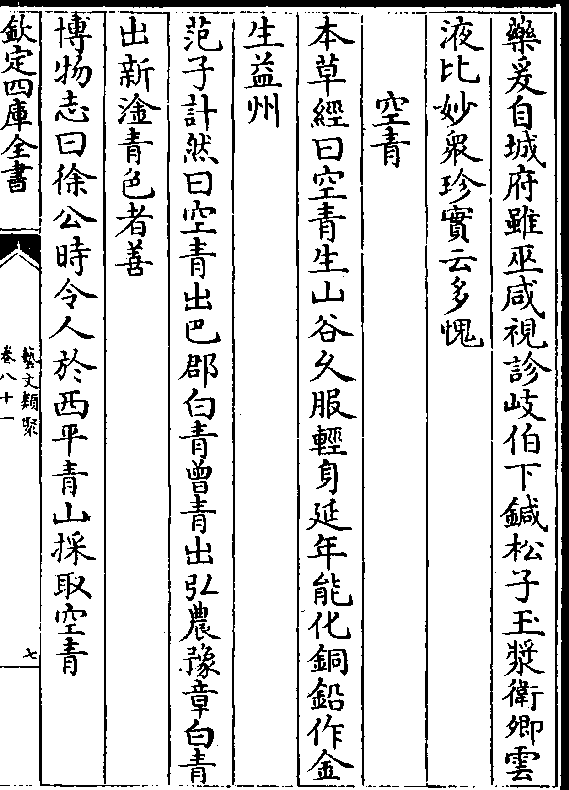 藥爰自城府雖巫咸視診岐伯下鍼松子玉漿衛卿雲
液比妙衆珍實云多愧
空青
本草經曰空青生山谷久服輕身延年能化銅鉛作金
生益州
范子計然曰空青出巴郡白青曾青出弘農豫章白青
出新淦青色者善
博物志曰徐公時令人於西平青山採取空青
欽定四庫全書
藝文類聚
卷八十一
七